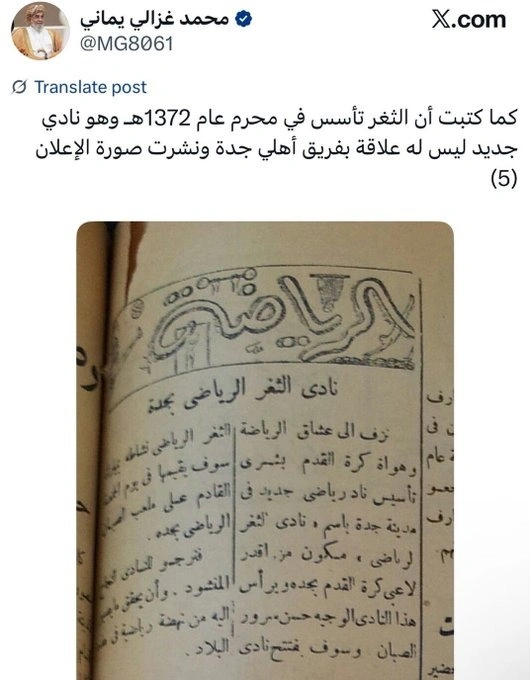 محمد غزالي يماني
@MG8061
X.com
Translate post
كما كتبت أن الثغر تأسس في محرم عام 1372هـ وهو نادي
جديد ليس له علاقة بفريق أهلي جدة ونشرت صورة الإعلان
(5)
الرياضة
نادى الثغر الرياضى بجدة
نزف الى عشاق الرياضة
وهواة كرة القدم بشرى
تأسيس ناد رياضى جديد فى
مدينة جدة باسم « نادى الثغر
لرياضى » مكون من اقدر
لاعبى كرة القدم بجده ويرأس
هذا النادى الوجيه حسن سرور
الصبان وسوف يفتتح نادى
الثغر الرياضى نشاطه
سوف يقيمها فى يوم
القادم على ملعب الصبان
الرياضى بجده .
فنرجو للنادى
المنشود . وأن يحقق
اليه من نهضة رياضية فى
البلاد .
ارف
ن فى
عام
ارف